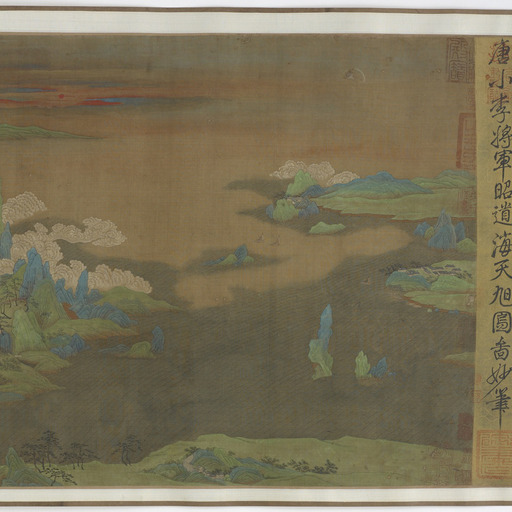 唐小李將軍昭道海天旭圖啚妙筆